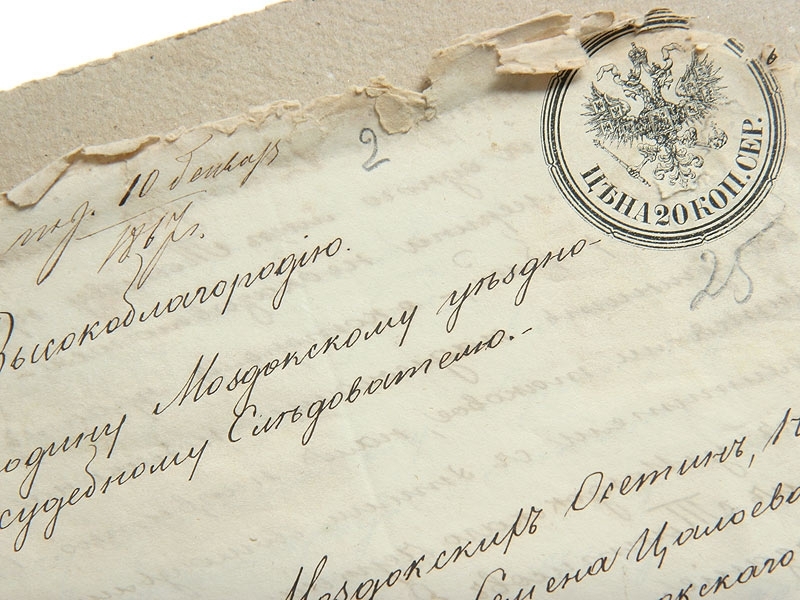 2
ЦѢНА 20 КОП. СЕР.
под. 10 Генваря
1867 г.
25
Высокоблагородію.
Моздокскому уѣздно-
судебному Слѣдователю.-
Моздокскихъ Осетинъ,
Семена Цалоева